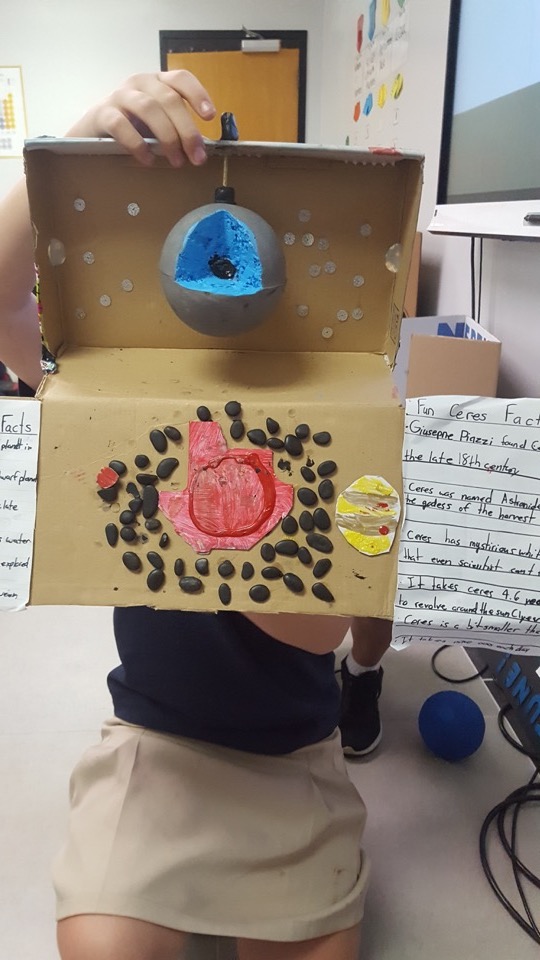 Facts
planet in
dwarf planet
late
water
explored
Fun Ceres Fact
Giuseppe Piazzi found Ce
the late 18th century
Ceres was named
be godess of the harvest
Ceres has mysterious whit
that even scientist cant
It takes ceres 4.6
to revolve around the sun (
Ceres is a bit smaller tha
It takes
N
UNE